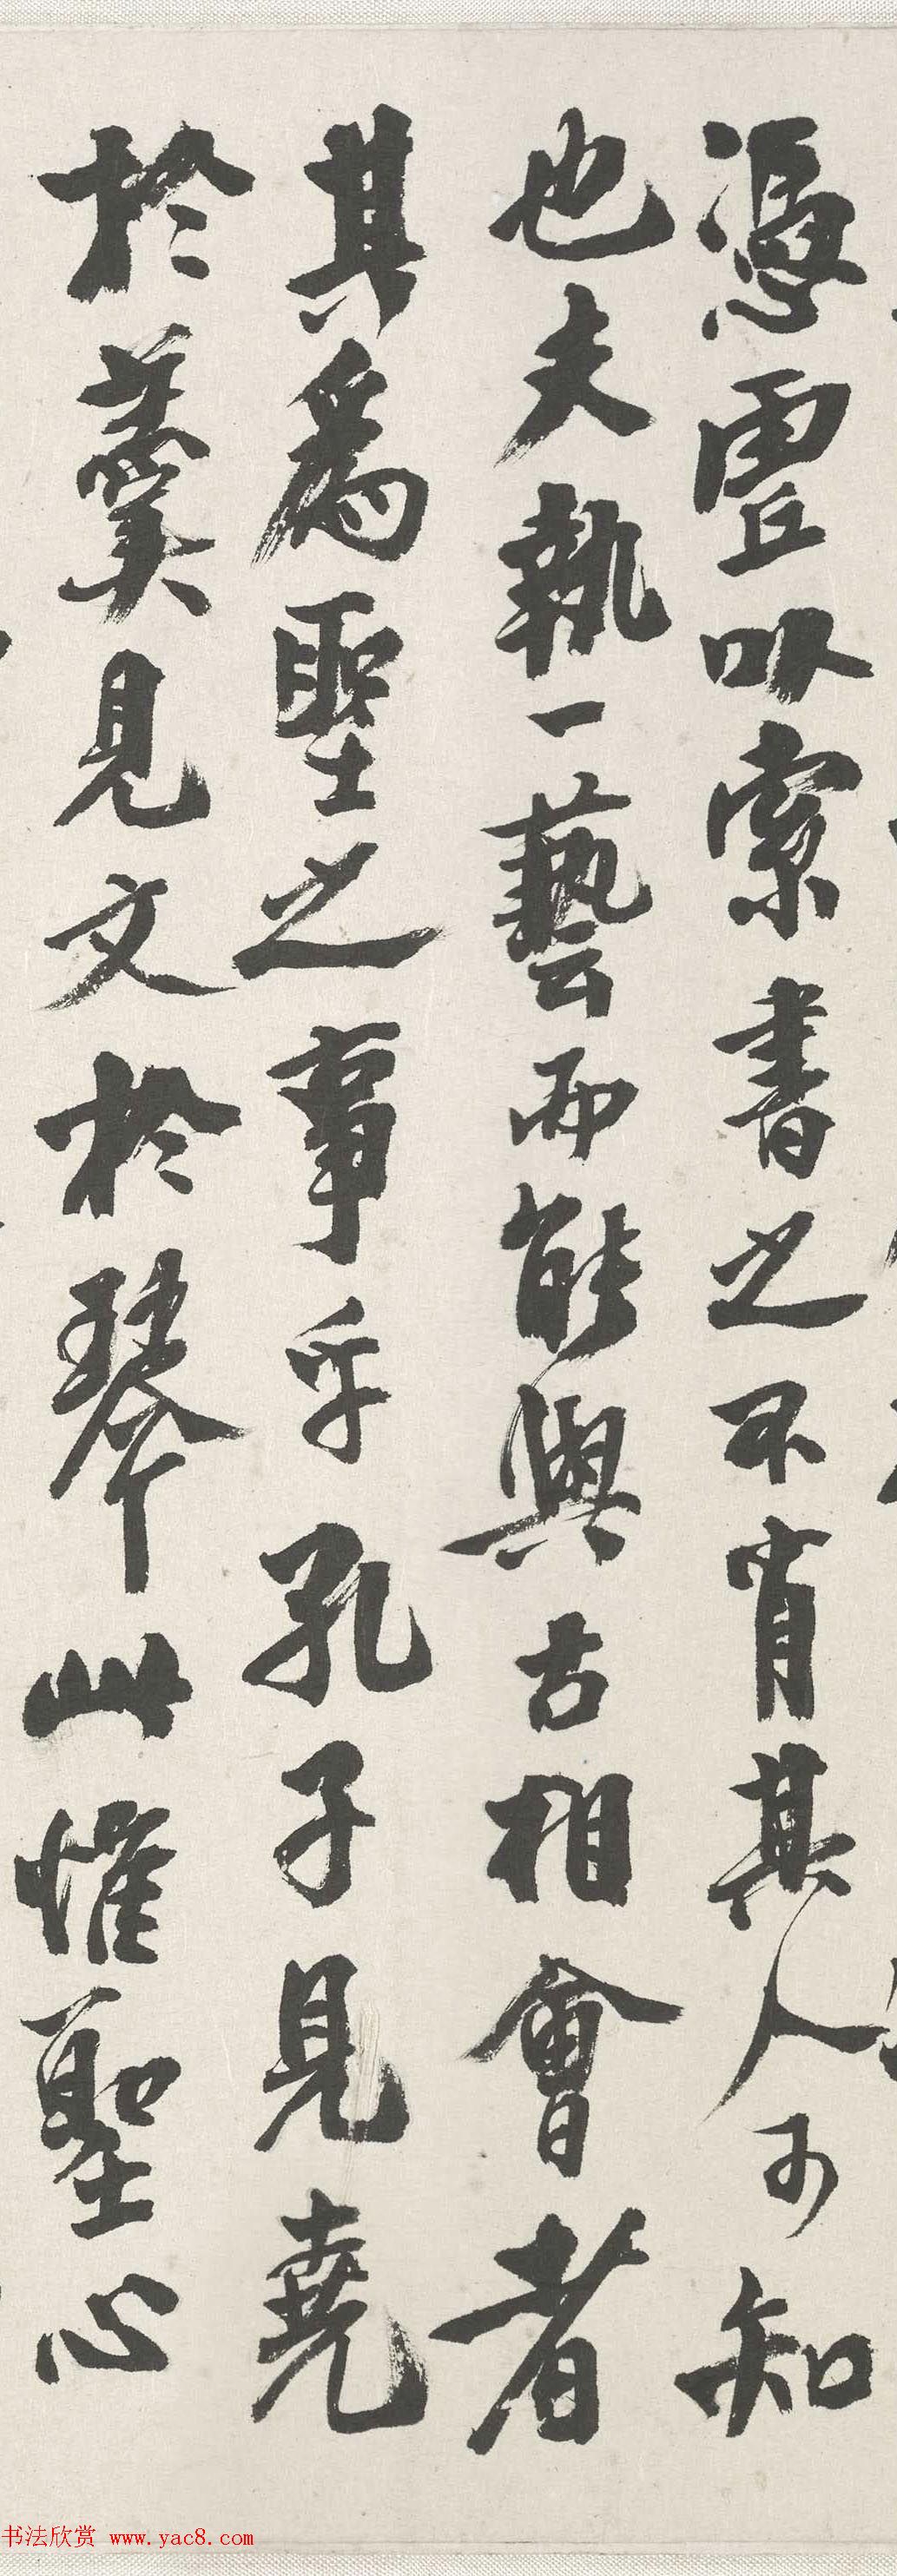 憑虛以索書之不肖其人可知
也夫執一藝而能與古相會者
其為聖之事乎孔子見堯
於羹見文於琴此惟聖心
书法欣赏 www.yac8.com